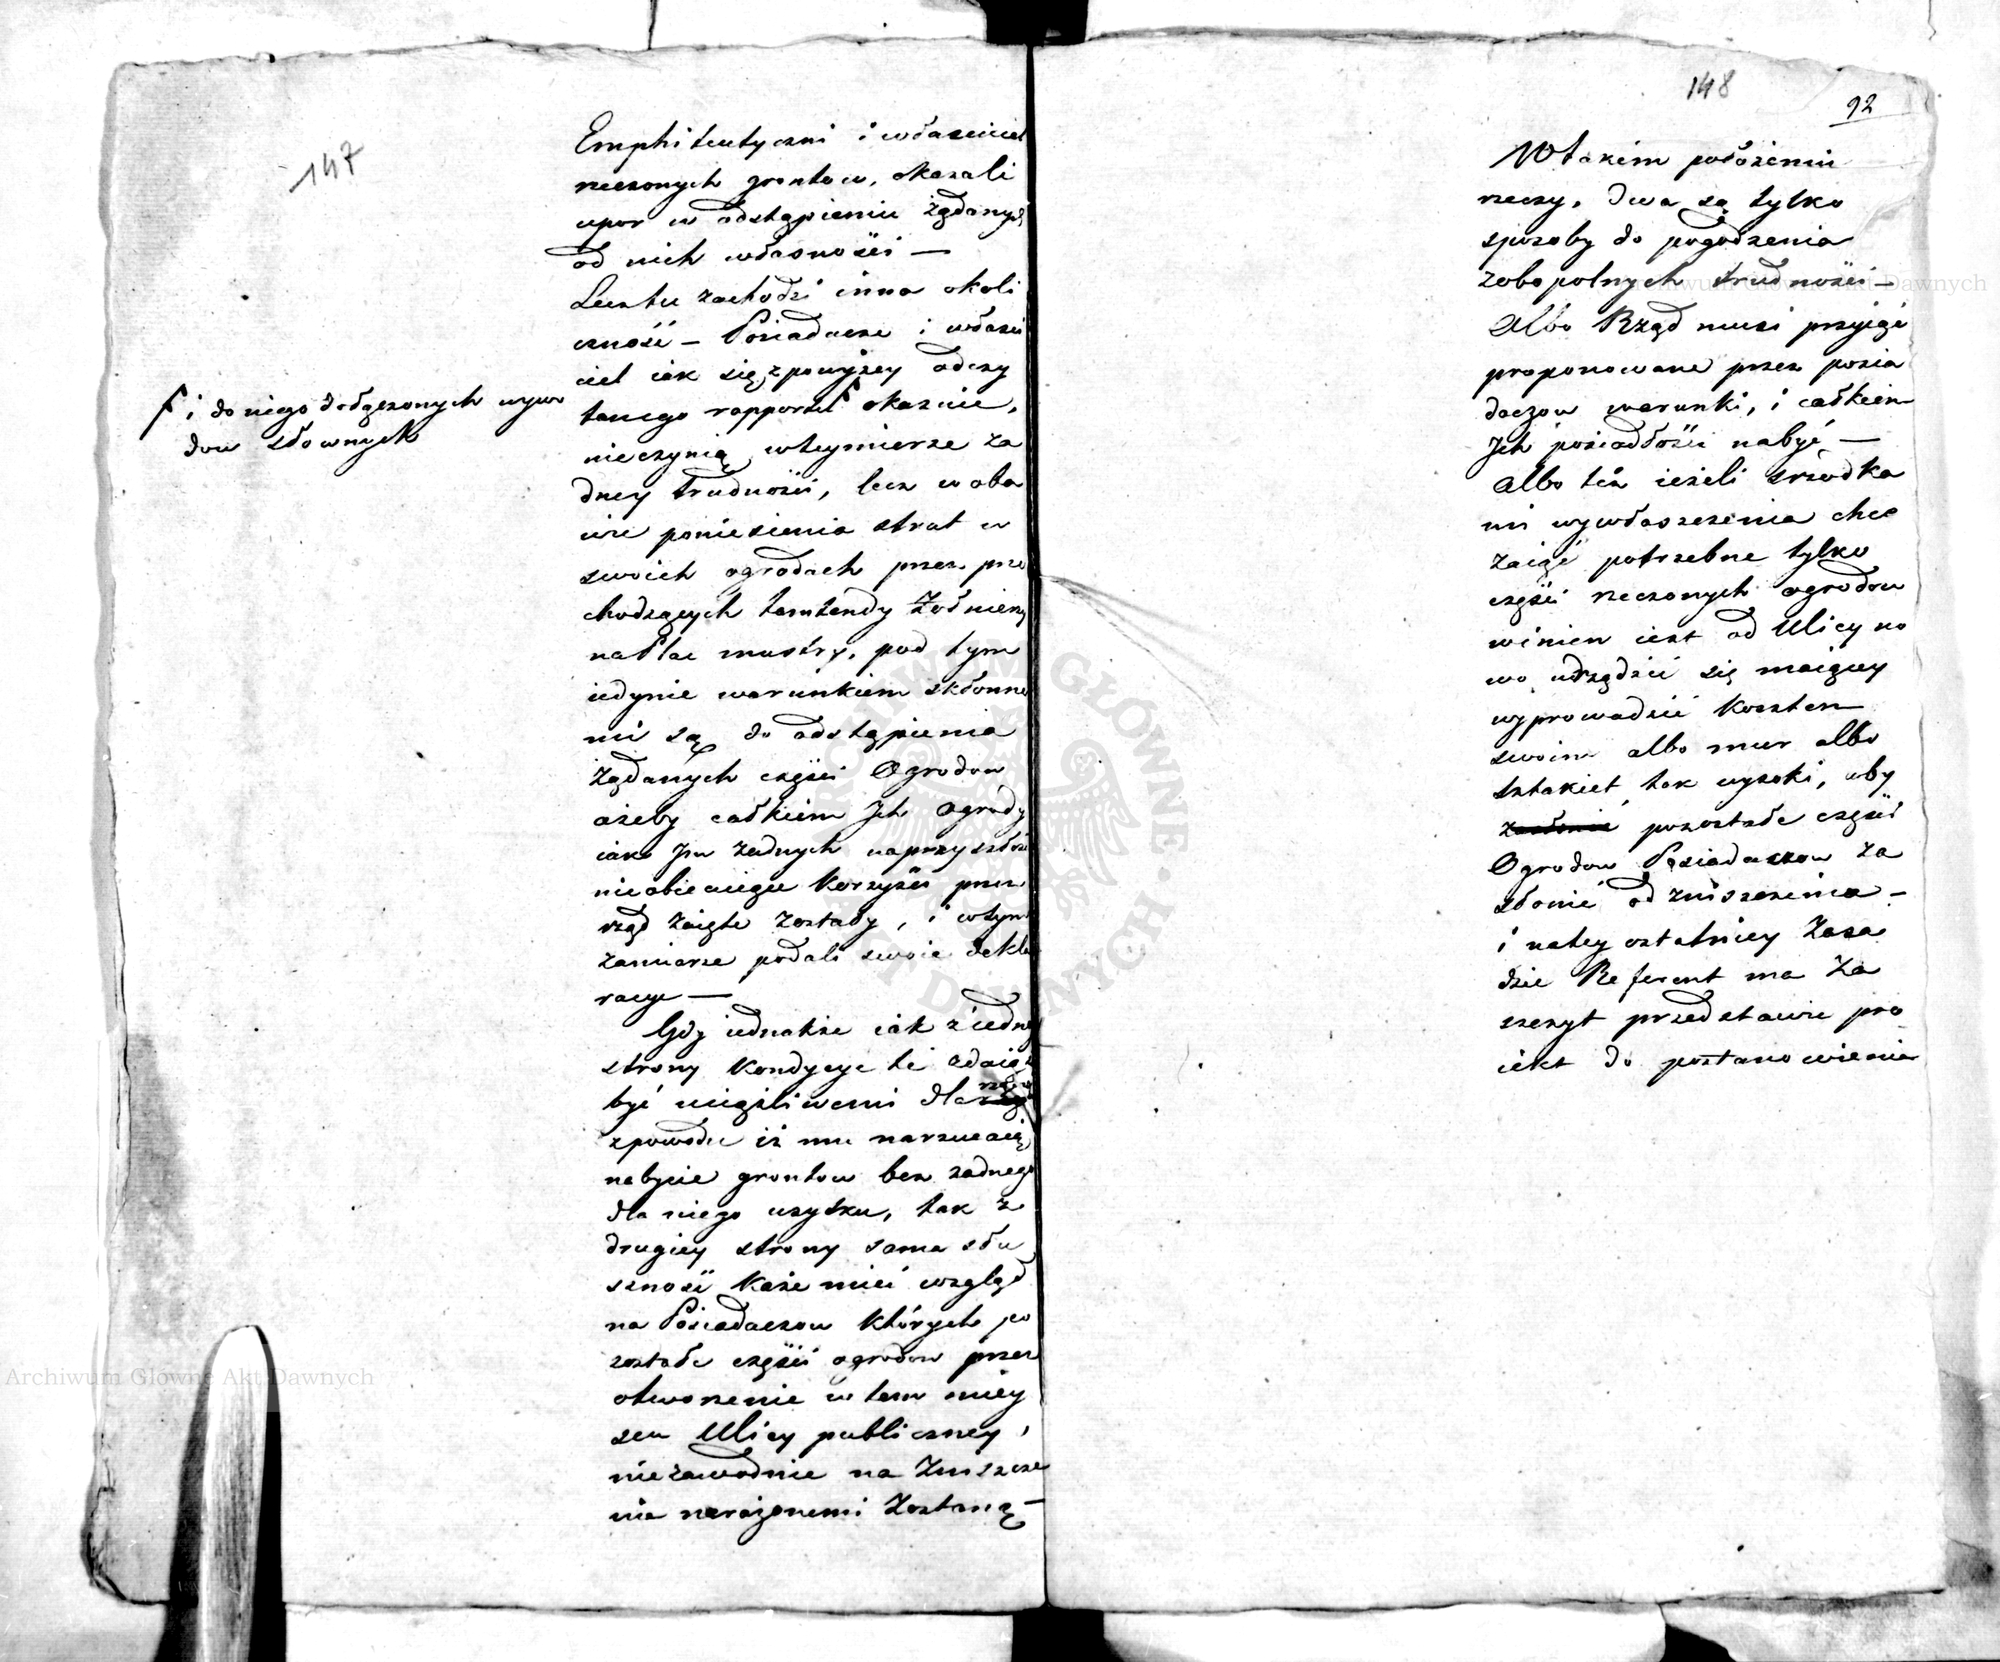 147
Emphiteutyczni i właściciel
rzeczonych grontow, okazali
upor w odstąpieniu żądanych
od nich własności —
Lecz tu zachodzi inna okoli
czność — Posiadacze i właści
ciel iak się z powyższey odczy
tanego rapportu ƒ okazuie,
ƒ i do niego dołączonych wywo
dow słownych
nieczynią wteymierze ża
dney trudności, lecz w oba
wie poniesienia strat w
swoich ogrodach przez prze
chodzących tamtendy Żołnierzy
na Plac mustry, pod tym
iedynie warunkiem skłonne
mi są do odstąpienia
żądanych części Ogrodow
ażeby całkiem Ich Ogrody
iako Im żadnych naprzyszłość
nieobiecuiące korzyści przez
rząd zaięte zostały, i wtym
zamiarze podali swoie dekla
racye —
Gdy iednakże iak z iedney
strony kondycye te zdaią się
być uciążliwemi dla rządu
zpowodu iż mu narzucaią
nabycie grontow bez żadnego
dla niego użytku, tak z
drugiey strony sama słu
szność każe mieć wzgląd
na Posiadaczow których po
zostałe części ogrodow przez
otworzenie w tem miey
scu Ulicy publiczney,
niezawodnie na Zniszcze
nia narażonemi Zostaną —
148
92
W takim położeniu
rzeczy, dwa są tylko
sposoby do pogodzenia
zobopolnych trudności —
Albo Rząd musi przyiąć
proponowane przez posia
daczow warunki, i całkiem
Ich posiadłości nabyć —
Albo też ieżeli srzodka
mi wywłaszczenia chce
zaiąć potrzebne tylko
części rzeczonych ogrodow
winien iest od Ulicy no
wo urządzić się maiącey
wyprowadzić kosztem
swoim albo mur albo
sztakiet tak wysoki, aby
pozostałe części
Ogrodow Posiadaczow za
słonić od zniszczenia —
i natey ostatniey Zasa
dzie Referent ma Za
szczyt przedstawić pro
iekt do postanowienia
Archiwum Główne Akt Dawnych
Archiwum Główne Akt Dawnych
ARCHIWUM GŁÓWNE AKT DAWNYCH